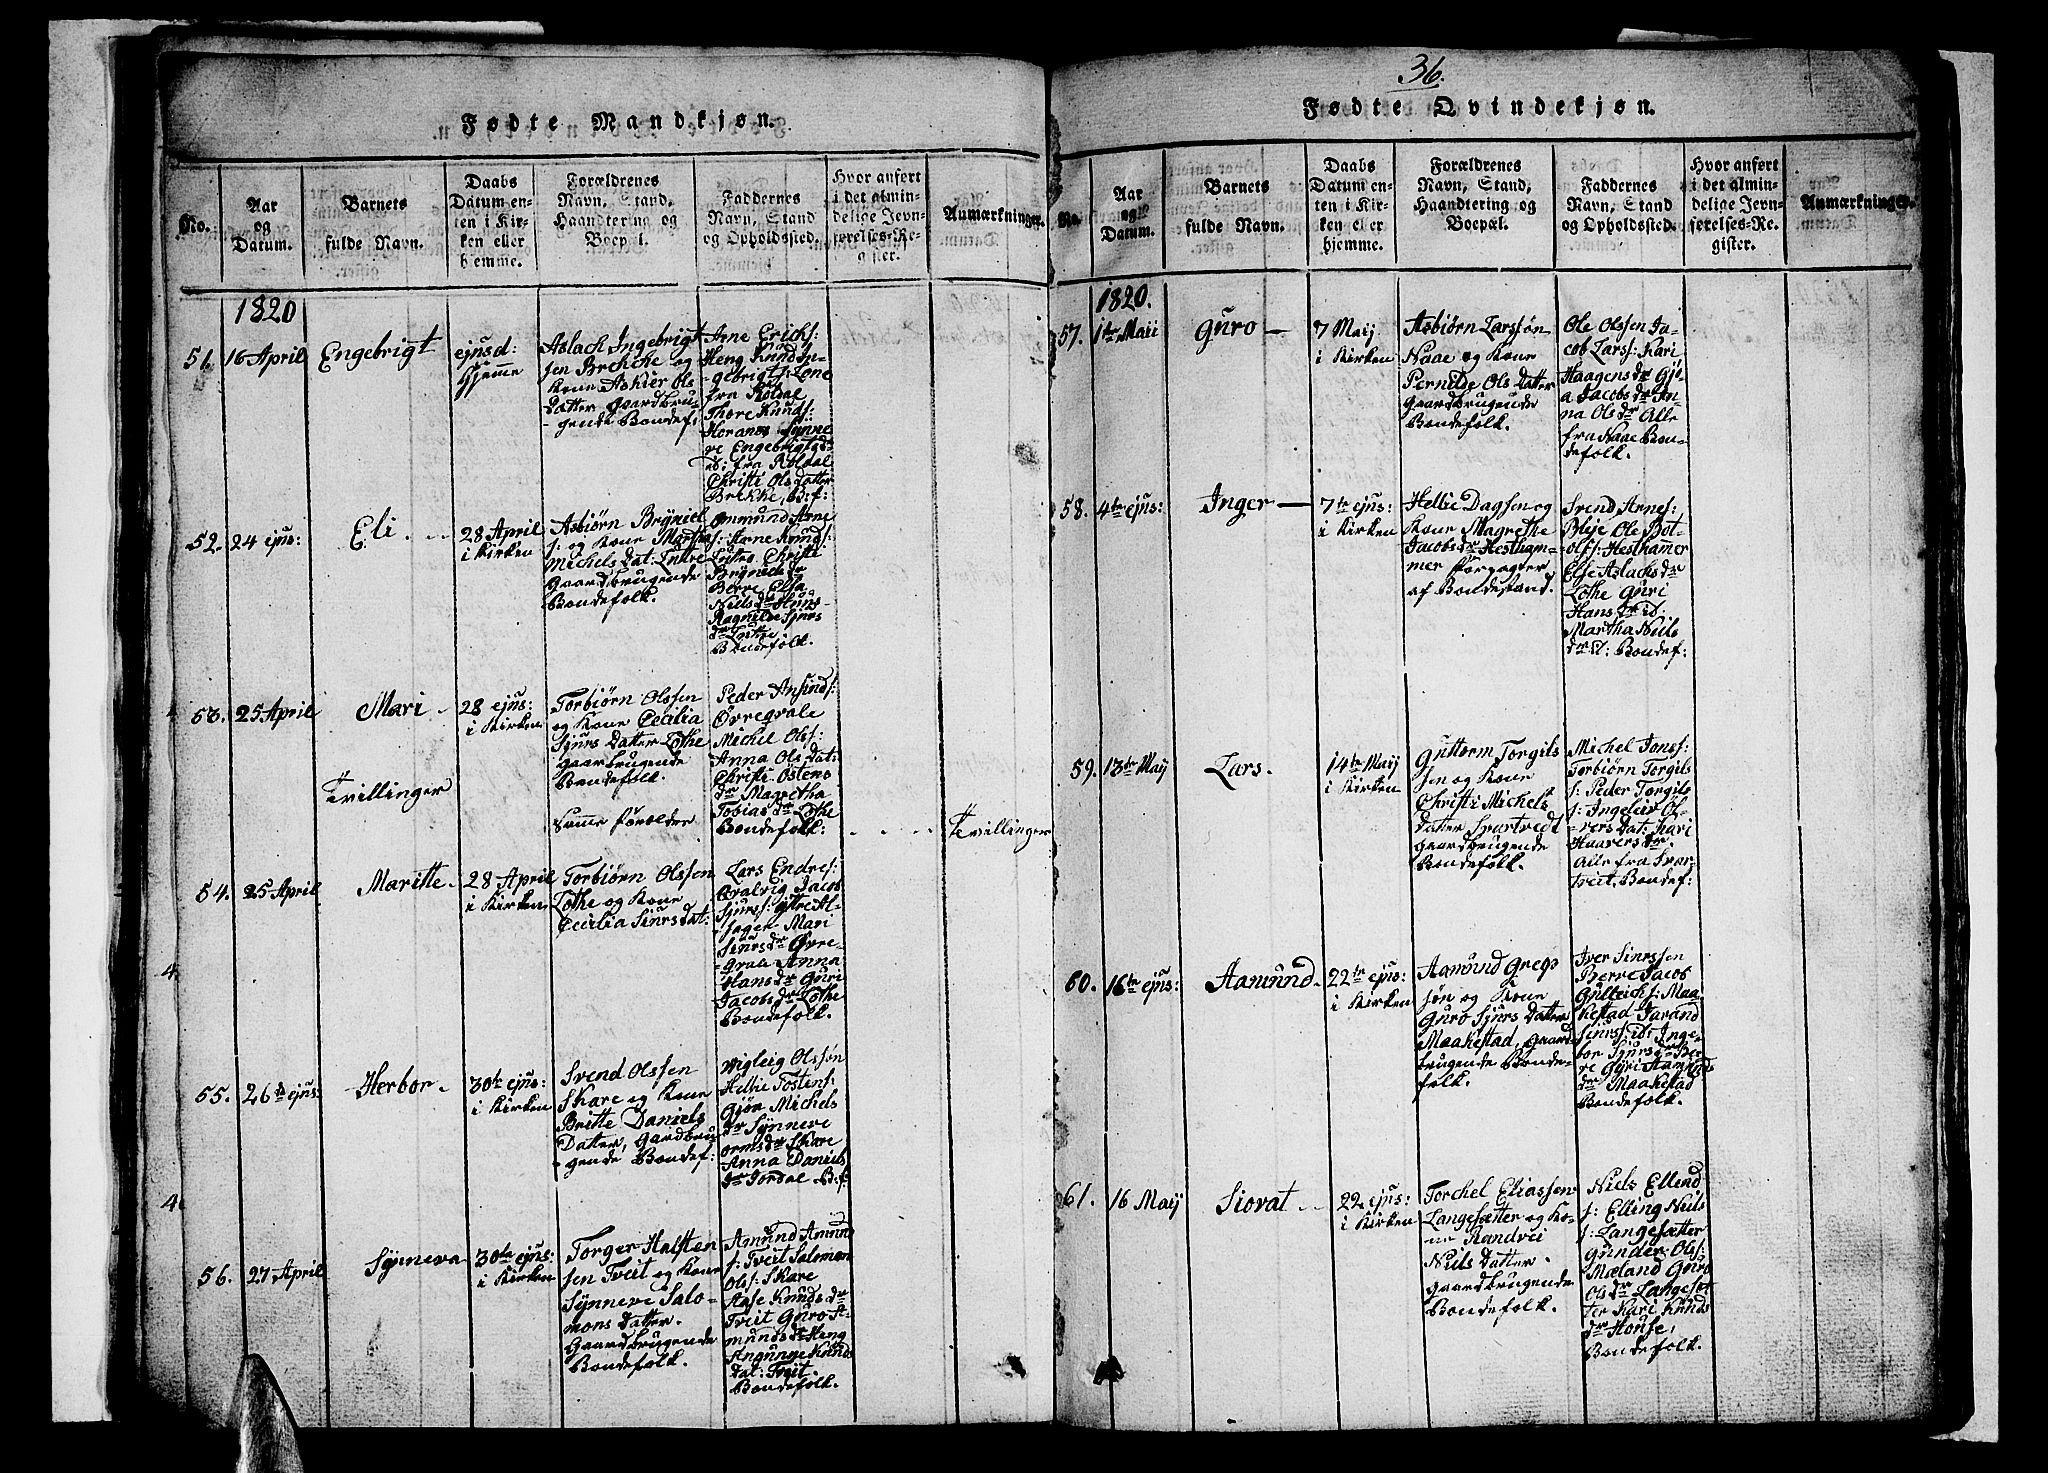 Fødte Mandkjøn.
No.
Aar
og
Datum.
Barnets
fulde Navn.
Daabs
Datum en-
ten i Kir-
ken eller
hjemme.
Forældrenes
Navn, Stand,
Haandtering og
Boepæl.
Faddernes
Navn, Stand
og Opholdssted.
Hvor anført
i det almin-
delige Jevn-
førelses-Re-
gister.
Anmærkninger.
1820
51.
16 April
Engebrigt
ejusd:
hjemme
Aslach Ingebrigt
sen Brekke og
Kone Askier Ols
Datter gaardbru-
gende Bondef:
Arne Erichs:
Heng Knud In-
gebrigts: Lone
fra Roldal
Thore Knuds:
Horanes Synne
ve Engebrigtsd:
ib: fra Roldal
Christi Olsdatter
Brekke, B:f:
52.
24 ejus:
Eli
28 April
i Kirken
Asbiørn Bryniel
s: og Kone Martha
Michels Dat:
Gaardbrugende
Bondefolk.
Omund Arne
s: Arne Knuds:
Christi
Bryniels dr
Berre Else
Niels dr
Ragnilde Sjurs
dr
Bondefolk.
53.
25 April
Mari
Tvillinger
28 ejus:
i Kirken
Torbiørn Olssen
og Kone Cecilia
Sjurs Datter Lothe
gaarbrugende
Bondefolk.
Samme Forælder
Peder Amunds:
Øvreqvale
Michel Olss:
Anna Ols Dat:
Christi Østens
dr Magretha
Tobias dr Lothe
Bondefolk:
Tvillinger
54.
25 April
Maritte
28 April
i Kirken
Torbiørn Olssen
Lothe og Kone
Cecilia Siursdat:
Lars Endres:
Qvalvig Jacob
Sjurss: ytre Al-
sager Mari
Siursdr Øvre-
qvale Anna
Hansdr Guri
Jacobsdr Lothe
Bondefolk.
4
55.
26de ejus:
Herbor
30te ejus:
i Kirken
Svend Olssen
Skare og Kone
Britte Daniels
Datter, gaardbru
gende Bondef:
Wigleig Olssøn
Helie Tostens:
Gjør Michels
dr Synneve
ormsdr Skare
Anna Daniels
dr Jordal B:f:
4
56.
27 April
Synneva
30te ejus:
i Kirken
Torger Halsten
sen Tveit og Kone
Synneve Salo-
mons Datter.
Gaardbrugende
Bondefolk.
Amund Amund
s: Tveit Salomon
Ols: Skare
Aase Knuds dr
Tveit Guro A-
munds dr Heng
Angunne Knuds
Dat: Tveit.
Bondefolk.
36.
Fødte Qvindekjøn.
No.
Aar
og
Datum.
Barnets
fulde Navn.
Daabs
Datum en-
ten i Kir-
ken eller
hjemme.
Forældrenes
Navn, Stand,
Haandtering og
Boepæl.
Faddernes
Navn, Stand
og Opholdssted.
Hvor anført
i det almin-
delige Jevn-
førelses-Re-
gister.
Anmærkninger.
1820.
57.
1te Maii
Guro
7 Maij
i Kirken
Asbiørn Larssøn
Naae og Kone
Pernilde Ols Datter
gaardbrugende
Bondefolk.
Ole Olssen Ja-
cob Larss: Kari
Haagensdr Gjø-
a Jacobsdr An-
na Olsdr Alle
fra Naae Bon-
defolk.
58.
4te ejus:
Inger
7te ejus:
i Kirken
Helie Dagsen og
Kone Magrethe
Jacobsdr Hestham-
mer Forpagter
af Bondestand.
Svend Arnes:
Bleje Ole Bot-
olfs: Hesthamer
Else Aslachsdr
Lothe Guri
Hans dr ib:
Martha Niels
dr ib: Bondef:
59.
13te Maij
Lars.
14te Maij
i Kirken
Guttorm Torgils
sen og Kone
Christi Michels
Datter Svartvedt
gaardbrugende
Bondefolk.
Michel Jonss:
Torbiørn Torgils
s: Peder Torgils
s: Ingeleiv Ol-
vers Dat: Kari
Haavers dr.
Alle fra Svar-
tveit, Bondef:
60.
16te ejus:
Aamund
22te ejus:
i Kirken
Aamund Gregs
søn og Kone
Guro Sjurs Datter
Maakestad, gaard
brugende Bonde-
folk.
Iver Siurssen
Berre Jacob
Gulleichs: Maa-
kestad Tarand
Siurss: ib: Inge-
bor Sjursdr Ber-
re Gyri Aamunds
dr Maakestad
Bondefolk.
61.
16 Maij
Siovat
22 ejus:
i Kirken
Torchel Eliassen
Langesætter og Ko-
ne Randvei
Niels Datter.
gaardbrugende
Bondefolk.
Niels Ellend
s: Elling Niels
s: Langesætter
Gunder Ols:
Mæland Guro
Ols dr Langesæt
ter Kari Knuds
dr House,
Bondefolk.